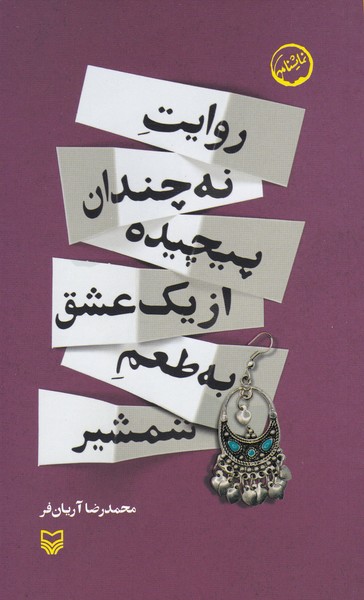 نمایشنامه
روایتِ
نه چندان
پیچیده
از یک عشق
به طعمِ
شمشیر
محمدرضا آریان‌فر